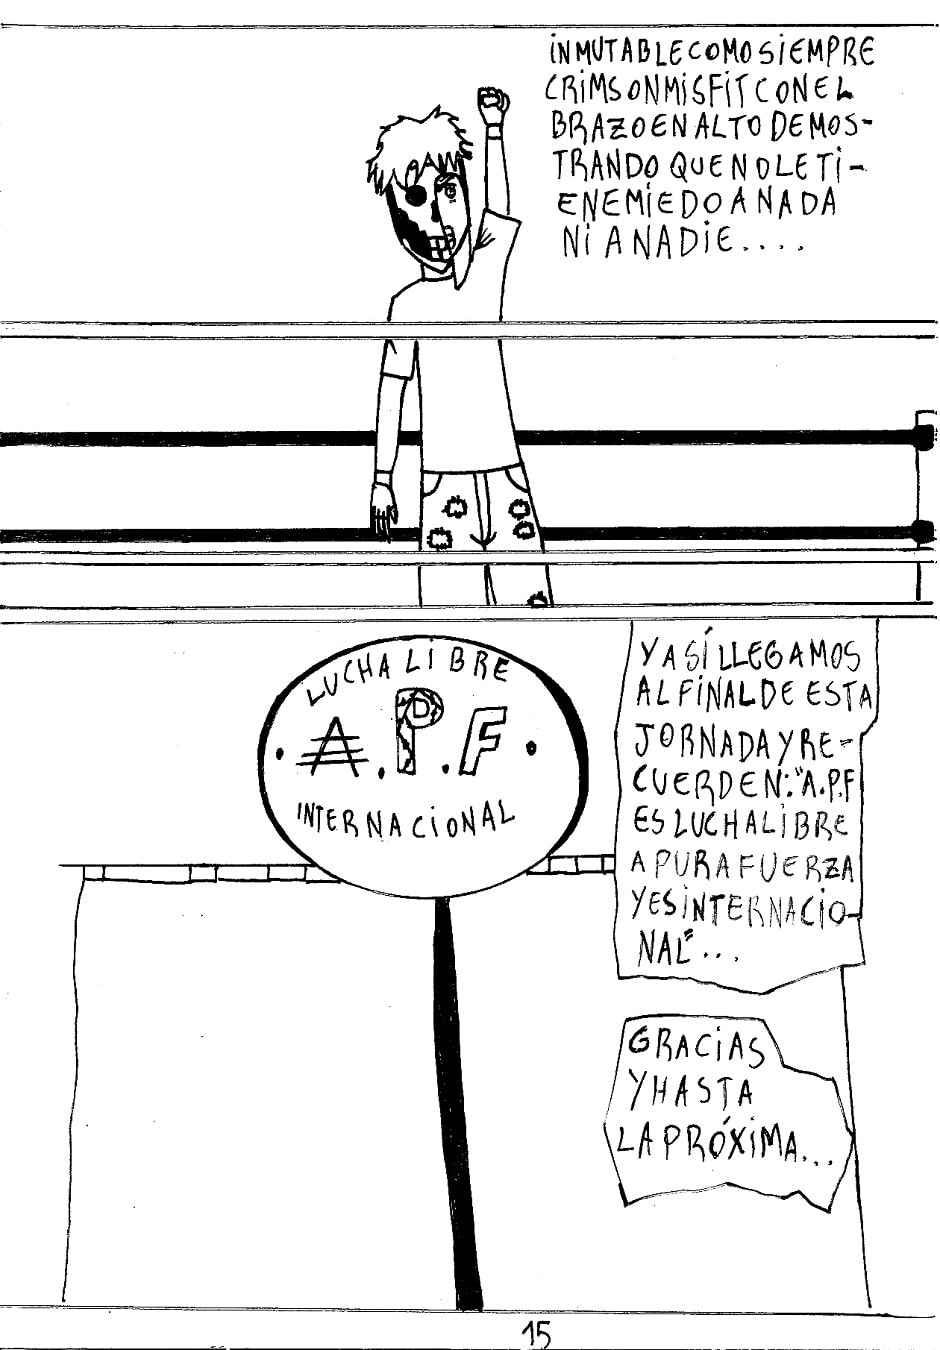 INMUTABLE COMO SIEMPRE
CRIMSON MISFIT CON EL
BRAZO EN ALTO DEMOS-
TRANDO QUE NO LE TI-
ENE MIEDO A NADA
NI A NADIE....
LUCHA LIBRE
A.P.F
INTERNACIONAL
Y ASÍ LLEGAMOS
AL FINAL DE ESTA
JORNADA Y RE-
CUERDEN: "A.P.F
ES LUCHA LIBRE
A PURA FUERZA
Y ES INTERNACIO-
NAL"...
GRACIAS
Y HASTA
LA PRÓXIMA...
15